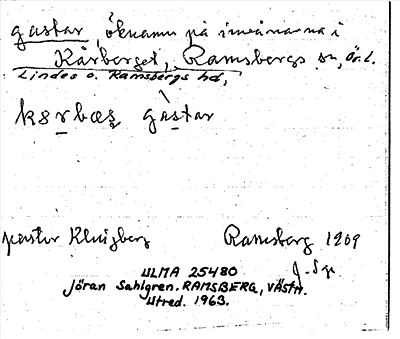 gastar, öknamn på invånarna i
Kårberget, Ramsbergs sn, Ör. l.
Lindes o. Ramsbergs hd,
kạrbæs gàstar
pastor Klingberg Ramsberg 1909
J. Sgn
ULMA 25480
Jöran Sahlgren. RAMSBERG, VÄSTM.
Utred. 1963.